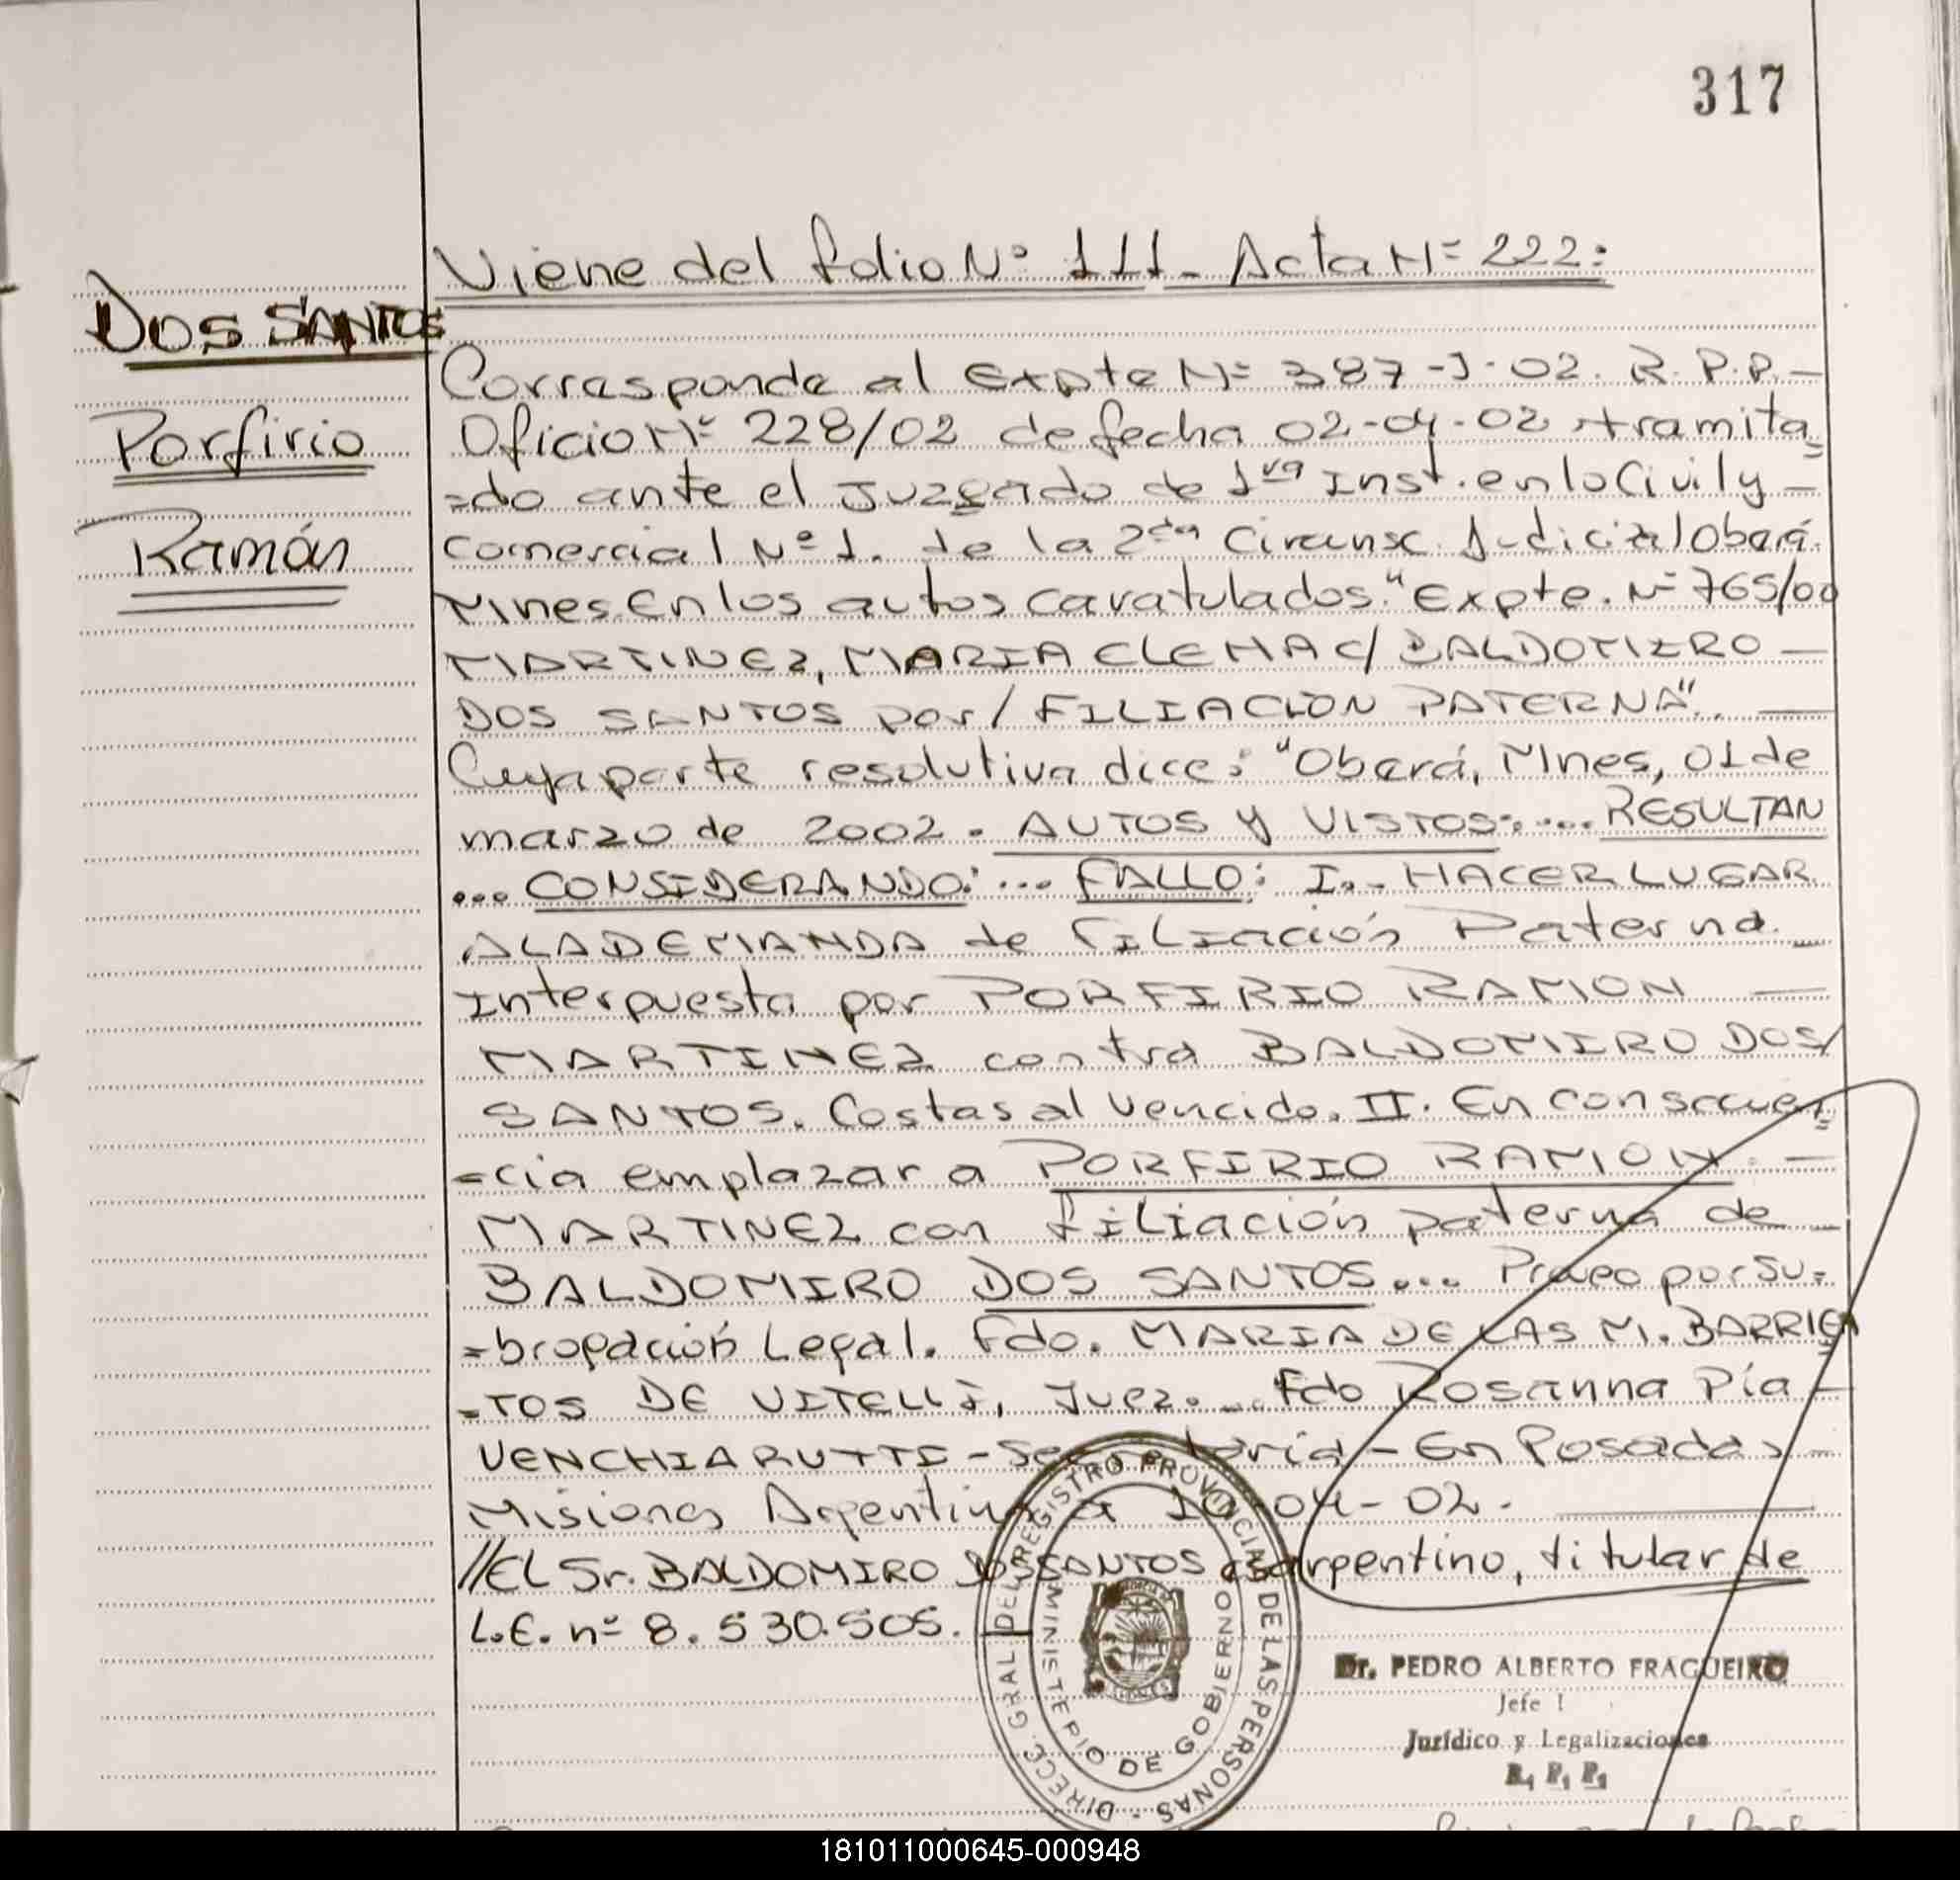 317
Viene del folio Nº 111 - Acta Nº 222:
DOS SANTOS
Porfirio
Ramón
Corresponde al Expte Nº 387-J-02. R.P.P.-
Oficio Nº 228/02 de fecha 02-04-02 tramita=
=do ante el Juzgado de 1ra Inst. en lo Civil y -
Comercial Nº 1. de la 2da Circunsc. Judicial Oberá.
Mnes. En los autos caratulados: "Expte. Nº 765/00
MARTINEZ, MARIA ELENA C/ BALDOMIRO -
DOS SANTOS por/ FILIACION PATERNA". -
Cuya parte resolutiva dice: "Oberá, Mnes, 01 de
marzo de 2002. AUTOS Y VISTOS:... RESULTAN
... CONSIDERANDO:... FALLO: I.- HACER LUGAR
A LA DEMANDA de Filiación Paterna. -
Interpuesta por PORFIRIO RAMON -
MARTINEZ contra BALDOMIRO DOS/
SANTOS. Costas al vencido. II. En consecuen=
=cia emplazar a PORFIRIO RAMON. -
MARTINEZ con filiación paterna de -
BALDOMIRO DOS SANTOS... por Su=
=brogación Legal. Fdo. MARIA DE LAS M. BARRIEN
=TOS DE VITELLI, Juez.... Fdo Rosanna Pía -
VENCHIARUTTI - Secretaria - En Posadas -
Misiones Argentina a 10-04-02.
//EL Sr. BALDOMIRO DOS SANTOS es argentino, titular de
L.E. nº 8.530.505.
DIRECC. GRAL. DEL REGISTRO PROVINCIAL DE LAS PERSONAS -
MINISTERIO DE GOBIERNO
Dr. PEDRO ALBERTO FRAGUEIRO
Jefe I
Jurídico y Legalizaciones
R. P. P.
181011000645-000948